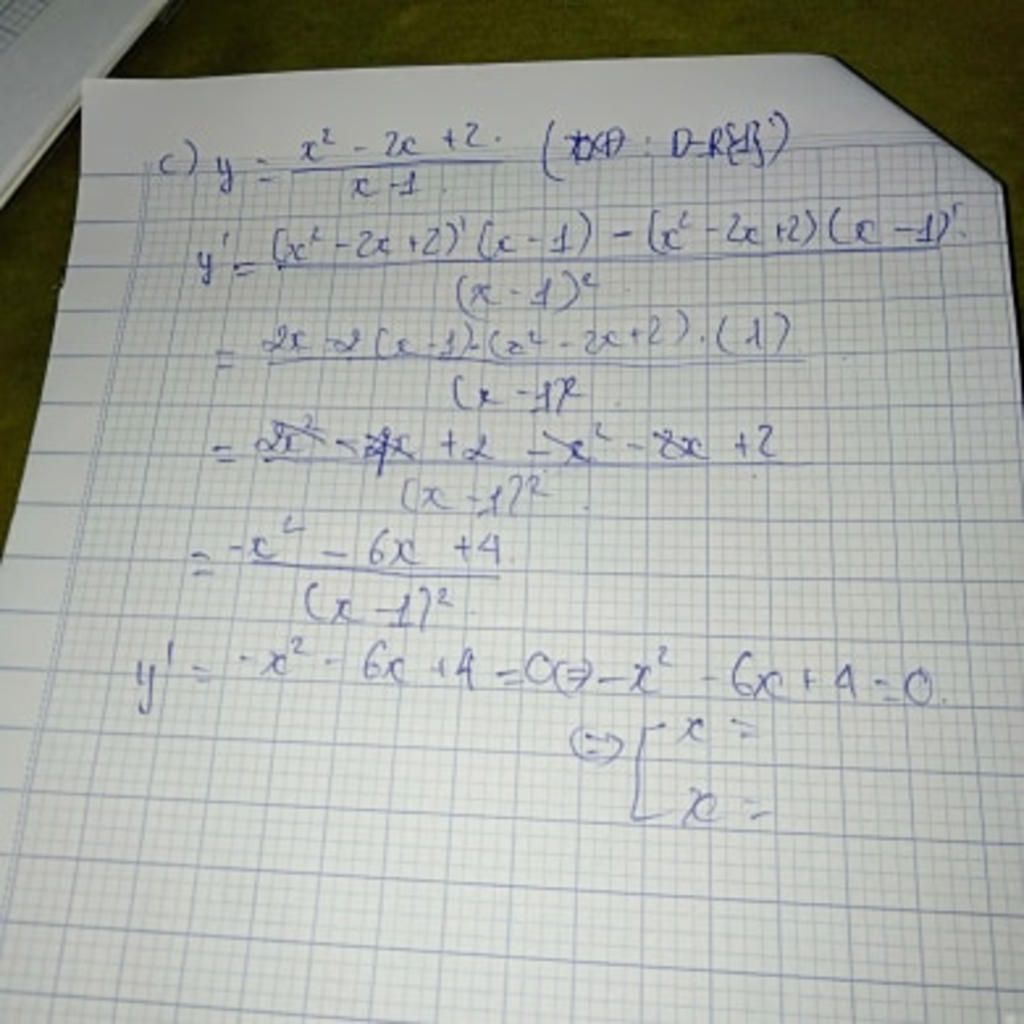 c) y = \frac{x² - 2x + 2}{x - 1} (TXĐ : D=R{1})
y' = \frac{(x² - 2x + 2)' (x - 1) - (x² - 2x + 2) (x - 1)'}{(x - 1)²}
= \frac{2x - 2 (x - 1) - (x² - 2x + 2) . (1)}{(x - 1)²}
= \frac{2x² - 4x + 2 - x² - 2x + 2}{(x - 1)²}
= \frac{-x² - 6x + 4}{(x - 1)²}
y' = -x² - 6x + 4 = 0 ⇔ -x² - 6x + 4 = 0.
⇔ [ x =
x =